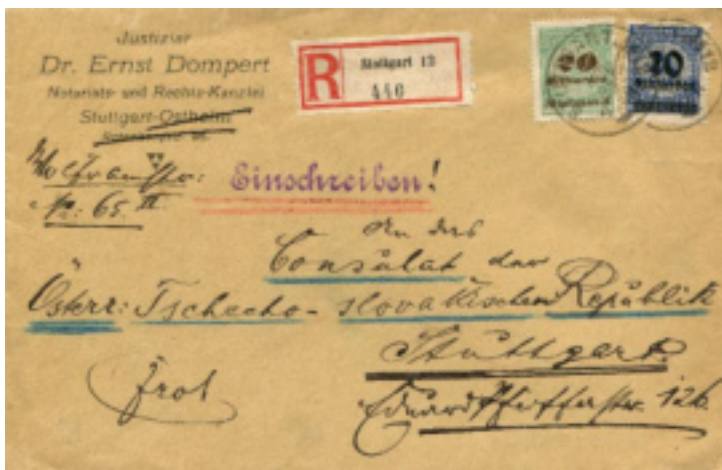 Justiziar
Dr. Ernst Dompert
Notariats- und Rechts-Kanzlei
Stuttgart-Ostheim
R
Stuttgart 13
446
20
10
Wolframstr:
Nr: 65 II
Einschreiben!
An das
Consulat der
Österr: Tschecho-slovakischen Republik
Stuttgart.
Eduard Pfeifferstr. 12b.